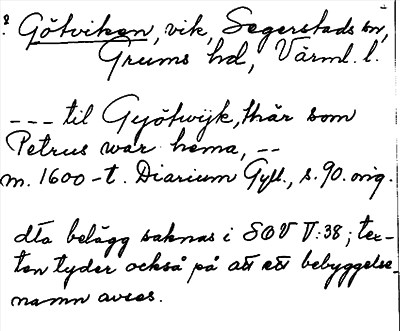 ? Götviken, vik, Segerstads sn,
Grums hd, Värml. l.
--- til Gyötwijk, thär som
Petrus war hema, --
m. 1600-t. Diarium Gyll., s. 90. orig.
dta belägg saknas i SOV V:38; tex-
ten tyder också på att ett bebyggelse-
namn avses.